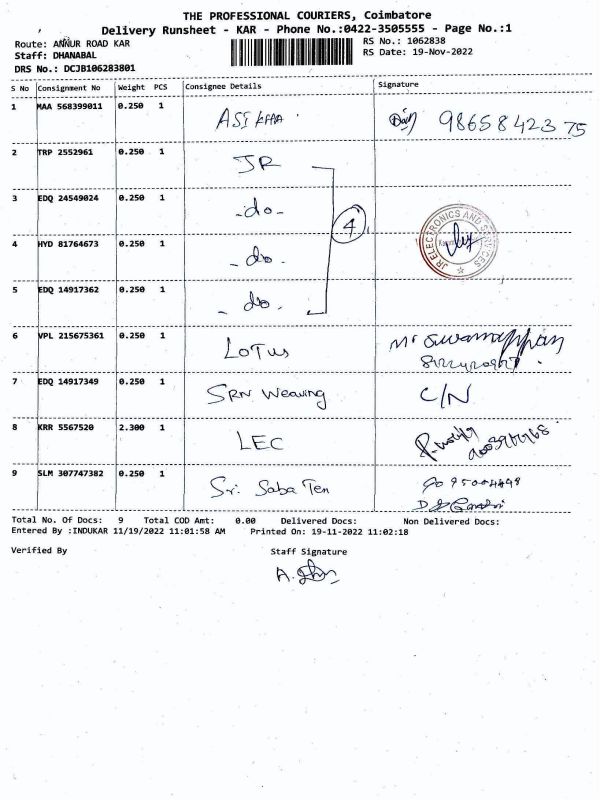 THE PROFESSIONAL COURIERS, Coimbatore
Delivery Runsheet - KAR - Phone No.:0422-3505555 - Page No.:1
Route: ANNUR ROAD KAR
RS No.: 1062838
Staff: DHANABAL
RS Date: 19-Nov-2022
DRS No.: DCJB106283801
S No Consignment No Weight PCS Consignee Details Signature
1 MAA 568399011 0.250 1 98658 423 75
2 TRP 2552961 0.250 1 JR
3 EDQ 24549024 0.250 1 -do-
4 HYD 81764673 0.250 1 -do-
4
JR ELECTRONICS AND SERVICES
5 EDQ 14917362 0.250 1 -do-
6 VPL 215675361 0.250 1 LOTUS
7 EDQ 14917349 0.250 1 SRN Weaving C/N
8 KRR 5567520 2.300 1 LEC
9 SLM 307747382 0.250 1 Sri Saba Tex
Total No. Of Docs: 9 Total COD Amt: 0.00 Delivered Docs: Non Delivered Docs:
Entered By :INDUKAR 11/19/2022 11:01:58 AM Printed On: 19-11-2022 11:02:18
Verified By Staff Signature